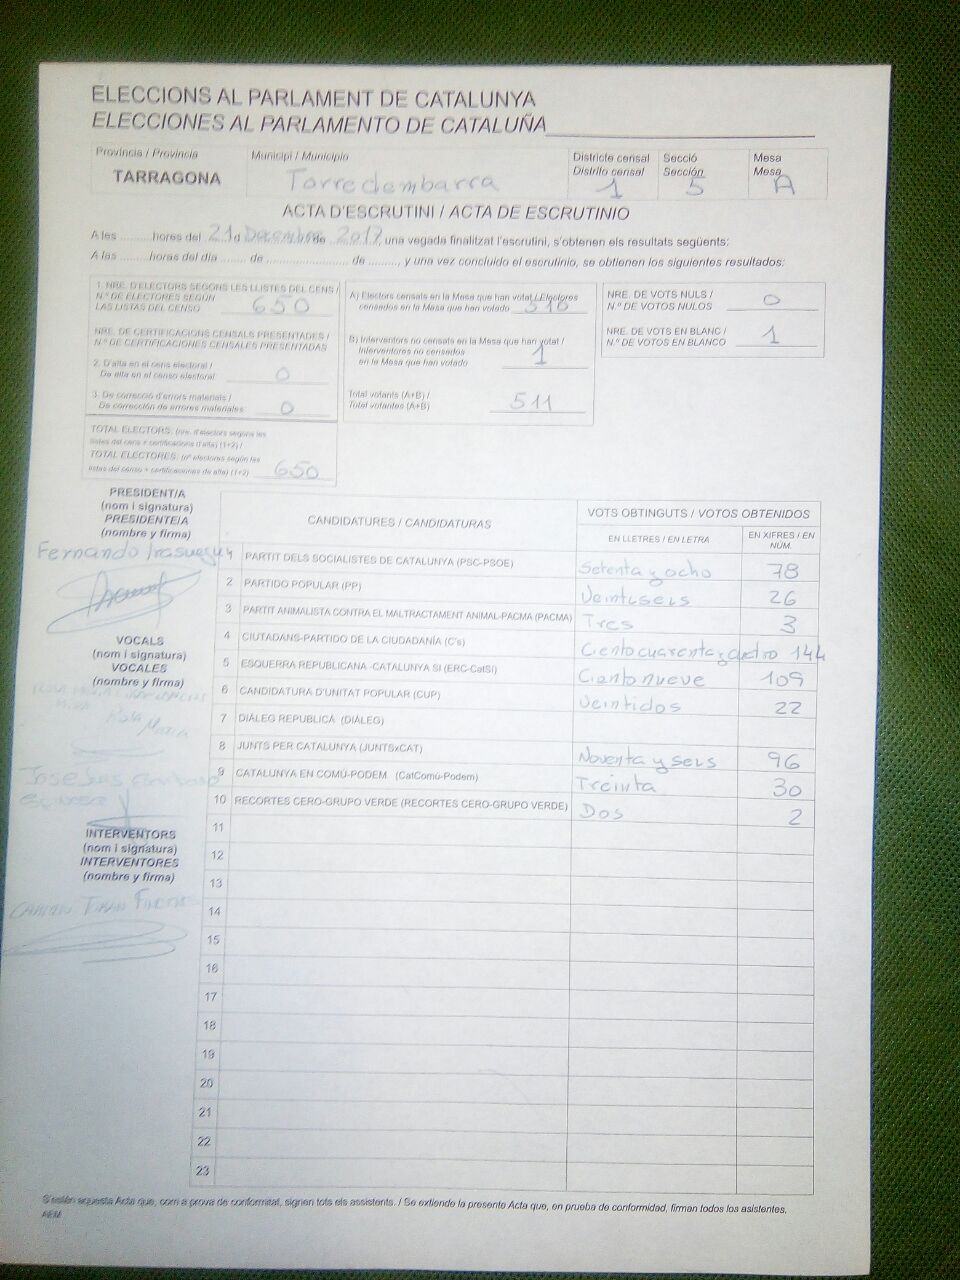 ELECCIONS AL PARLAMENT DE CATALUNYA
ELECCIONES AL PARLAMENTO DE CATALUÑA
Provincia / Provincia
TARRAGONA
Municipi / Municipio
Torredembarra
Districte censal
Distrito censal
1
Secció
Sección
5
Mesa
Mesa
A
ACTA D'ESCRUTINI / ACTA DE ESCRUTINIO
A les ......... hores del 21 d Decembre de 2017, una vegada finalitzat l'escrutini, s'obtenen els resultats següents:
A las ......... horas del día ....... de ........................ de ........., y una vez concluido el escrutinio, se obtienen los siguientes resultados:
1. NRE. D'ELECTORS SEGONS LES LLISTES DEL CENS /
N.º DE ELECTORES SEGÚN
LAS LISTAS DEL CENSO 650
NRE. DE CERTIFICACIONS CENSALS PRESENTADES /
N.º DE CERTIFICACIONES CENSALES PRESENTADAS
2. D'alta en el cens electoral /
De alta en el censo electoral 0
3. De correcció d'errors materials /
De corrección de errores materiales 0
TOTAL ELECTORS: (nre. d'electors segons les
llistes del cens + certificacions d'alta) (1+2) /
TOTAL ELECTORES: (nº electores según las
listas del censo + certificaciones de alta) (1+2) 650
A) Electors censats en la Mesa que han votat / Electores
censados en la Mesa que han votado 510
B) Interventors no censats en la Mesa que han votat /
Interventores no censados
en la Mesa que han votado 1
Total votants (A+B) /
Total votantes (A+B) 511
NRE. DE VOTS NULS /
N.º DE VOTOS NULOS 0
NRE. DE VOTS EN BLANC /
N.º DE VOTOS EN BLANCO 1
PRESIDENT/A
(nom i signatura)
PRESIDENTE/A
(nombre y firma)
Fernando
VOCALS
(nom i signatura)
VOCALES
(nombre y firma)
Rosa Maria
Jose Luis
INTERVENTORS
(nom i signatura)
INTERVENTORES
(nombre y firma)
CANDIDATURES / CANDIDATURAS
VOTS OBTINGUTS / VOTOS OBTENIDOS
EN LLETRES / EN LETRA
EN XIFRES / EN NÚM.
1 PARTIT DELS SOCIALISTES DE CATALUNYA (PSC-PSOE) Setenta y ocho 78
2 PARTIDO POPULAR (PP) Veintiseis 26
3 PARTIT ANIMALISTA CONTRA EL MALTRACTAMENT ANIMAL-PACMA (PACMA) Tres 3
4 CIUTADANS-PARTIDO DE LA CIUDADANÍA (C's) Ciento cuarenta y cuatro 144
5 ESQUERRA REPUBLICANA -CATALUNYA SI (ERC-CatSI) Ciento nueve 109
6 CANDIDATURA D'UNITAT POPULAR (CUP) Veintidos 22
7 DIÀLEG REPUBLICÀ (DIÀLEG)
8 JUNTS PER CATALUNYA (JUNTSxCAT) Noventa y seis 96
9 CATALUNYA EN COMÚ-PODEM (CatComú-Podem) Treinta 30
10 RECORTES CERO-GRUPO VERDE (RECORTES CERO-GRUPO VERDE) Dos 2
11
12
13
14
15
16
17
18
19
20
21
22
23
S'estén aquesta Acta que, com a prova de conformitat, signen tots els assistents. / Se extiende la presente Acta que, en prueba de conformidad, firman todos los asistentes.